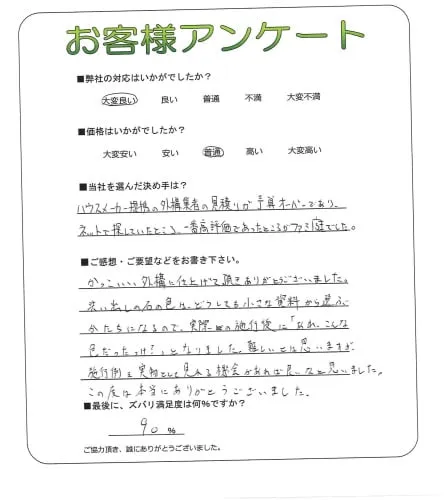 お客様アンケート
■弊社の対応はいかがでしたか？
大変良い 良い 普通 不満 大変不満
■価格はいかがでしたか？
大変安い 安い 普通 高い 大変高い
■当社を選んだ決め手は？
ハウスメーカー提携の外構業者の見積りが予算オーバーであり、
ネットで探していたところ、一番高評価であったところが庭でした。
■ご感想・ご要望などをお書き下さい。
かっこいい外構に仕上げて頂きありがとうございました。
洗い出しの石の色は、どうしても小さな資料から選ぶ
かたちになるので、実際の施行後に「なんか、こんな
色だったっけ？」となりました。難しいとは思いますが
施行例を実物として見れる機会があれば良いなと思いました。
この度は本当にありがとうございました。
■最後に、ズバリ満足度は何％ですか？
90 ％
ご協力頂き、誠にありがとうございました。